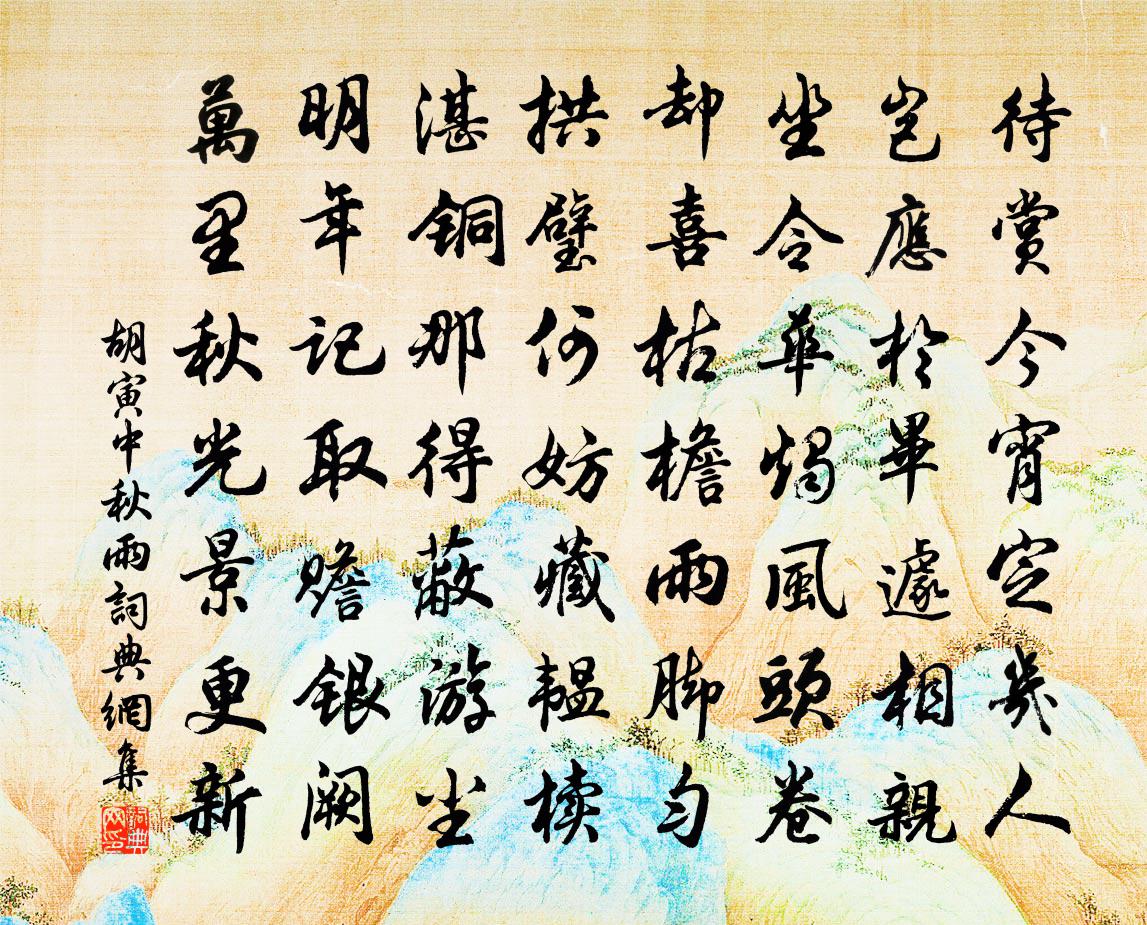 待賞今宵定幾人
豈應於畢遽相親
坐令華燭風頭卷
却喜枯檐雨脚勻
拱璧何妨藏韞櫝
湛銅那得蔽游尘
明年記取瞻銀闕
萬里秋光景更新
胡寅中秋雨詞典網集
詞典网印